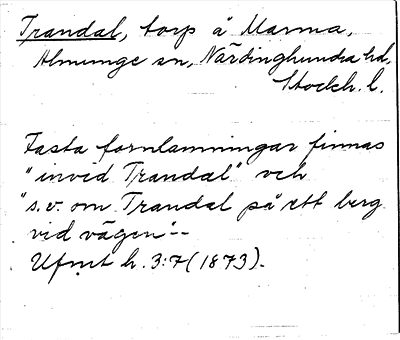 Trandal, torp å Marma,
Almunge sn, Närdinghundra hd,
Stockh. l.
Fasta fornlämningar finnas
"invid Trandal" och
"s.v. om Trandal på ett berg
vid vägen" --
Ufmt h. 3:7 (1873).